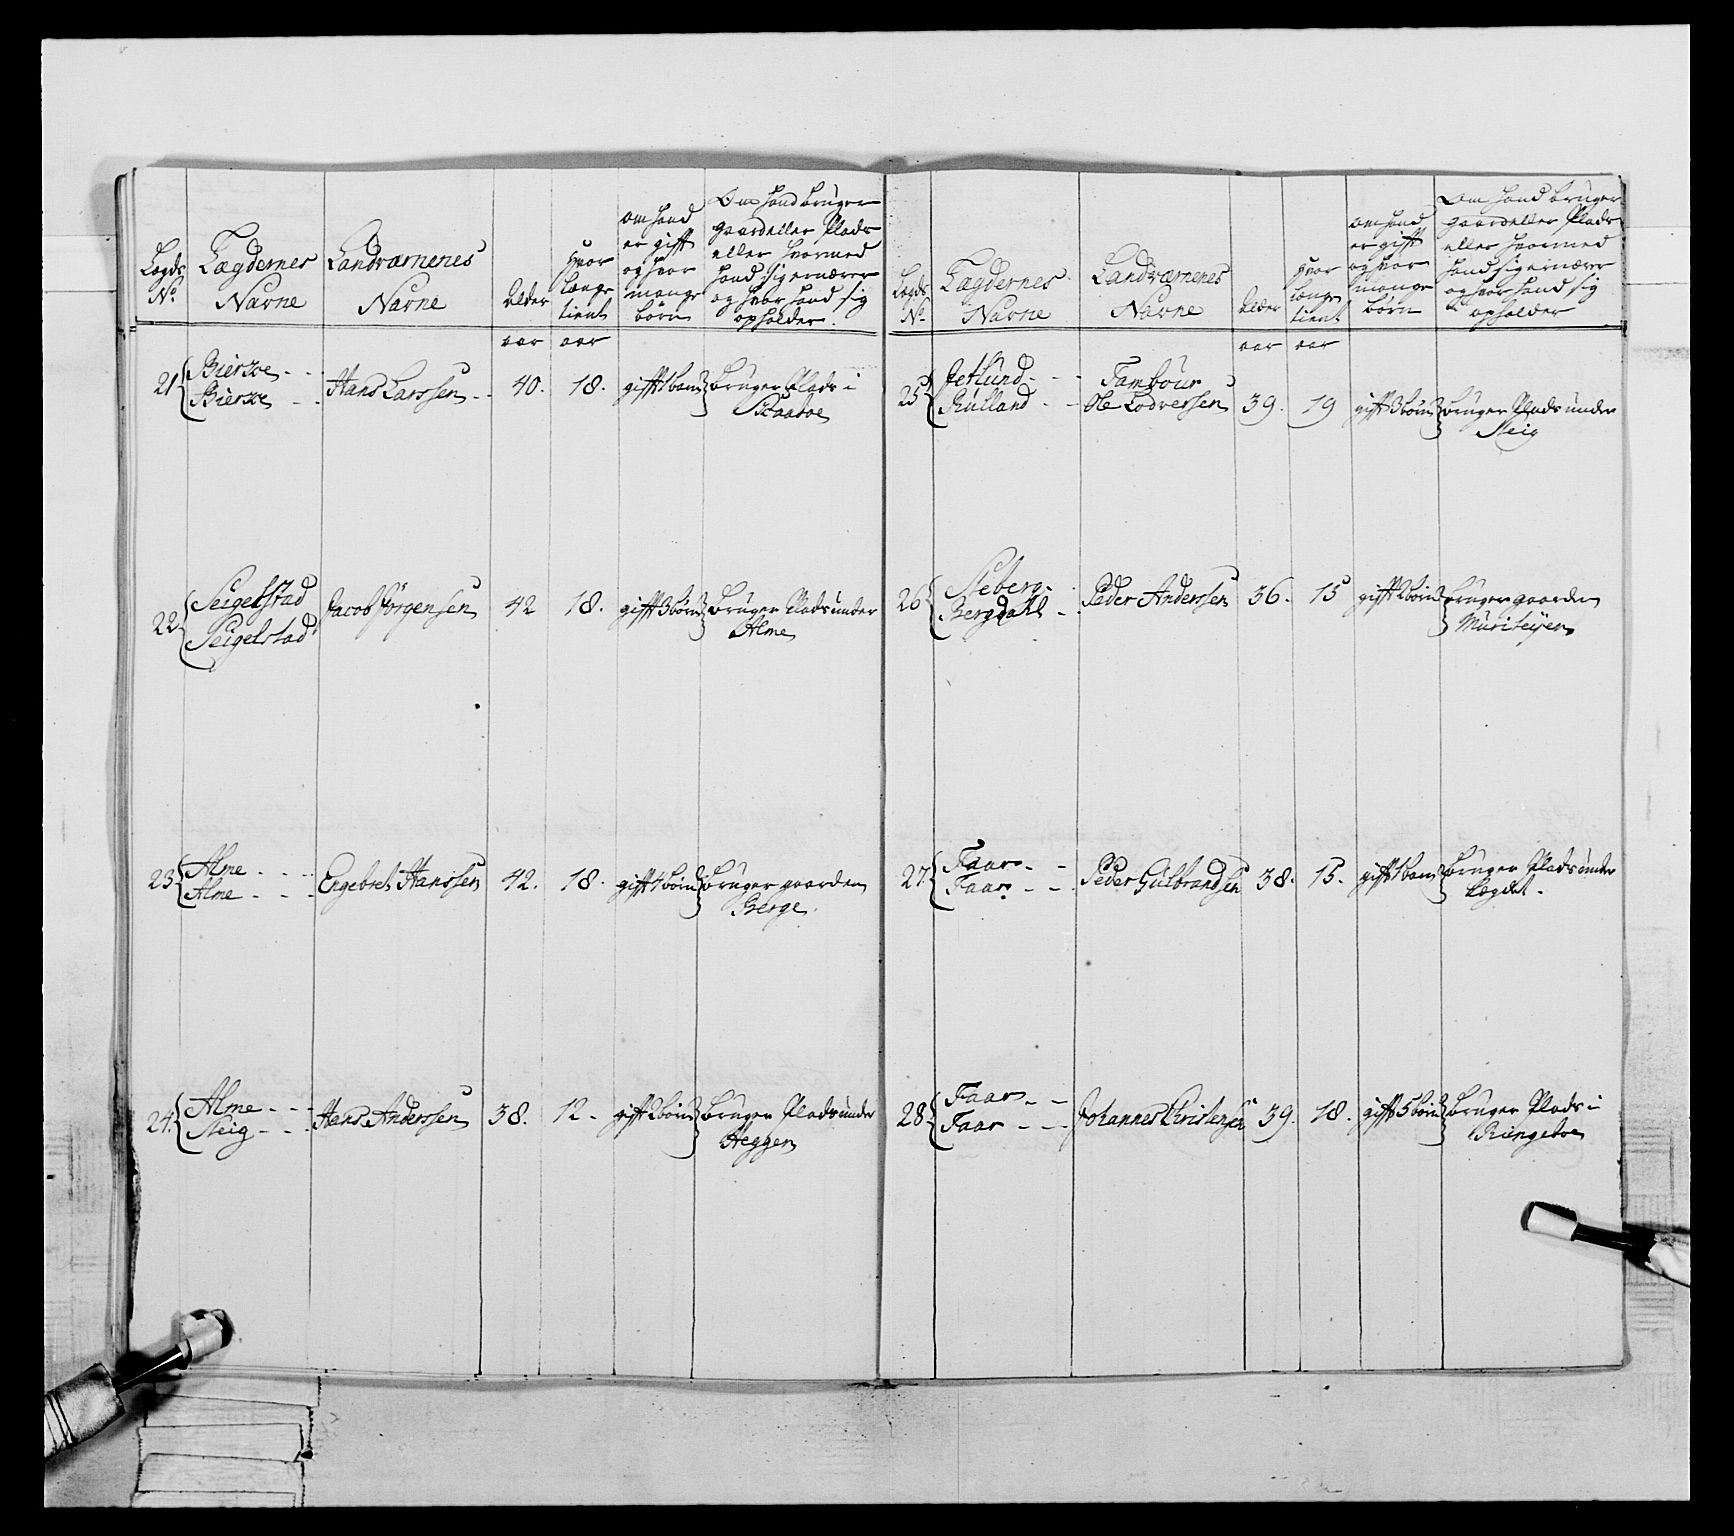 Legds No.
Lægdernes Navne
Landværnenes Navne
Alder
Hvor længe tient
Om hand er gift og hvor mange børn
Om hand bruger gaard eller Plads eller hvormed hand sig ernærer og hvor hand sig opholder.
aar aar
21 Biersoe - - Biersoe - - Hans Larssen - - 40. 18. gifft 1 barn bruger Plads i
Skaaboe
22. Seigelstad Seigelstad Jacob Jörgensen 42 18. gifft 3 börn bruger Plads under
Alme
23 Alme - - - Alme - - - Engebret Hanssen 42. 18. gifft 4 börn bruger gaarden
Berge.
24. Alme - - - Steig - - - Hans Anderssen 38. 12. gifft 2 börn bruger Plads under
Heggen
Legds No.
Lægdernes Navne
Landværnenes Navne
Alder
Hvor længe tient
Om hand er gift og hvor mange børn
Om hand bruger gaard eller Plads eller hvormed hand sig ernærer og hvor hand sig opholder
aar aar
25 Jetlund - - Rulland - - Tambour Ole Lodverssen 39. 19 gifft 3 börn bruger Plads under
Steig
26 Steberg - Bergdahl - Peder Anderssen 36. 15 gifft 2 börn bruger gaarden
27. Faar - - Faar - - Peder Gulbrandsen 38. 15. gifft 1 barn bruger Plads under
28 Faar - - Faar - - - Johannes Christensen 39. 18. gifft 5 börn bruger Plads i
Ringeboe